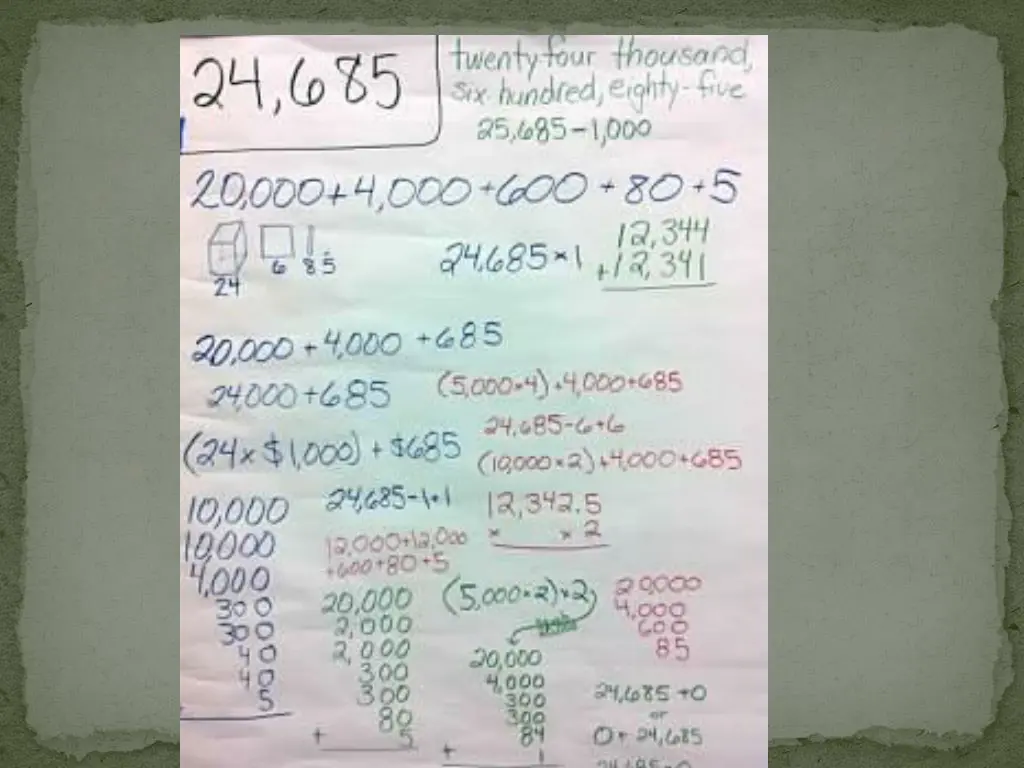 24,685
twenty four thousand,
six hundred, eighty-five
25,685-1,000
20,000+4,000+600+80+5
24 6 8 5
24,685×1
12,344
+12,341
20,000+4,000+685
24,000+685
(5,000×4)+4,000+685
24,685-6+6
(24×$1,000)+$685
(10,000×2)+4,000+685
24,685-1+1
12,342.5
× × 2
10,000
10,000
4,000
300
300
40
40
5
12,000+12,000
+600+80+5
20,000
2,000
2,000
300
300
80
+ 5
(5,000×2)×2
20,000
4,000
300
300
84
+ 1
20,000
4,000
600
85
24,685+0
or
0+24,685
24,685-0